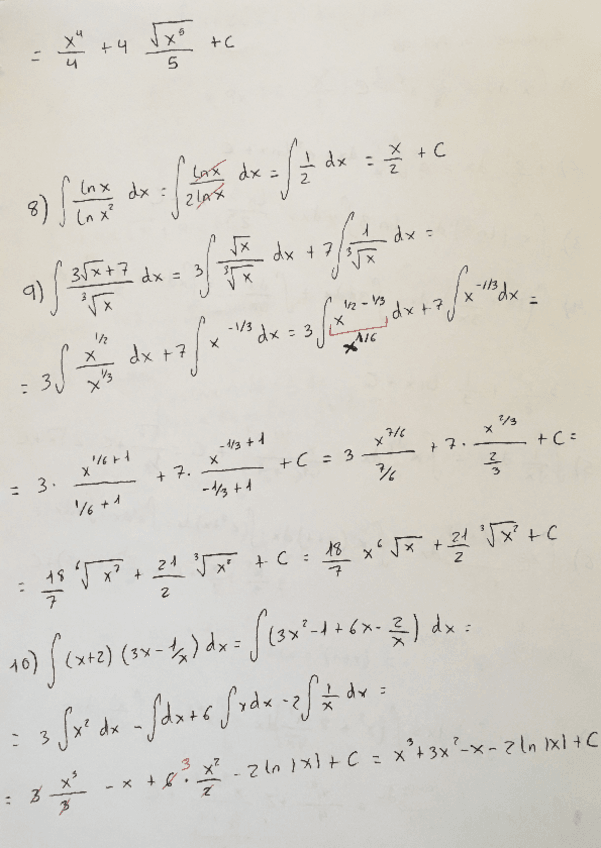 = x⁴/4 + 4 √(x⁵)/5 + C
8) ∫ ln x / ln x² dx = ∫ ln x / 2 ln x dx = ∫ 1/2 dx = x/2 + C
9) ∫ (3√x + 7) / ∛x dx = 3 ∫ √x / ∛x dx + 7 ∫ 1/∛x dx =
= 3 ∫ x^(1/2) / x^(1/3) dx + 7 ∫ x^(-1/3) dx = 3 ∫ x^(1/2 - 1/3) dx + 7 ∫ x^(-1/3) dx =
x^(1/6)
= 3 · x^(1/6 + 1) / (1/6 + 1) + 7 · x^(-1/3 + 1) / (-1/3 + 1) + C = 3 x^(7/6) / (7/6) + 7 · x^(2/3) / (2/3) + C =
= 18/7 ⁶√(x⁷) + 21/2 ∛(x²) + C = 18/7 x ⁶√x + 21/2 ∛(x²) + C
10) ∫ (x+2) (3x - 1/x) dx = ∫ (3x² - 1 + 6x - 2/x) dx =
= 3 ∫ x² dx - ∫ dx + 6 ∫ x dx - 2 ∫ 1/x dx =
= 3 x³/3 - x + 6 3 · x²/2 - 2 ln |x| + C = x³ + 3x² - x - 2 ln |x| + C